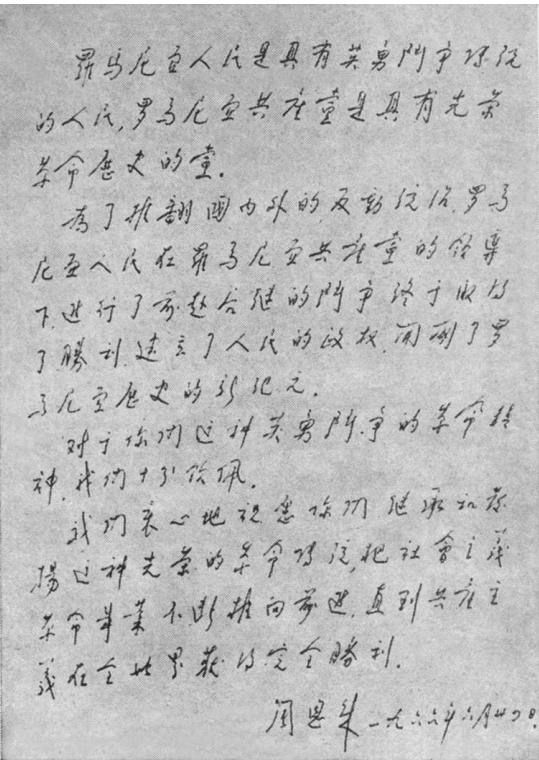 羅马尼亚人民是具有英勇鬥争傳统
的人民,罗马尼亚共産党是具有光荣
革命歷史的党.
為了推翻國内外的反動统治,罗马
尼亚人民在羅马尼亚共産党的领導
下,進行了前赴後继的鬥争终于取得
了勝利,建立了人民的政权,開闢了罗
马尼亚歷史的新纪元.
对于你们这种英勇鬥争的革命精
神,我们十分钦佩.
我们衷心地祝愿你们继承和發
揚这种光荣的革命传统,把社會主義
革命事業不断推向前進,直到共産主
義在全世界获得完全勝利.
周恩来 一九六六年六月廿四日.